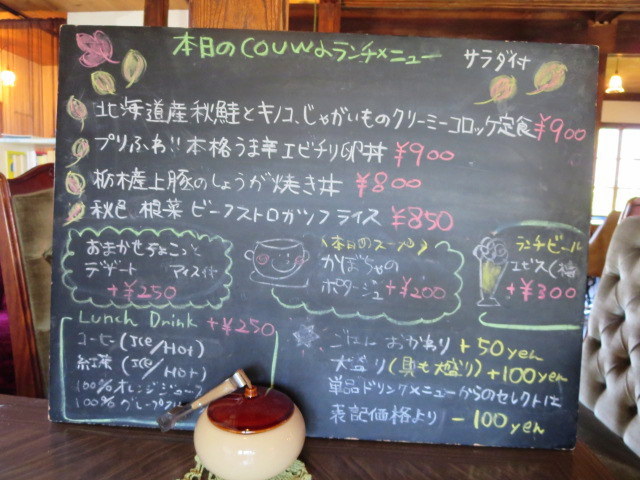 本日のcouwaランチメニュー
サラダ付
北海道産秋鮭とキノコ、じゃがいものクリーミーコロッケ定食 ¥900
プリふわ!!本格うま辛エビチリ卵丼 ¥900
栃木産上豚のしょうが焼き丼 ¥800
秋色 根菜ビーフストロガノフライス ¥850
おまかせちょこっと
デザート アイス付
+¥250
(本日のスープ)
かぼちゃの
ポタージュ +¥200
ランチビール
エビス
+¥300
Lunch Drink +¥250
コーヒー(Ice/Hot)
紅茶(Ice/Hot)
100%オレンジジュース
100%グレープフル
ごはん おかわり +50yen
大盛り(具も大盛り)+100yen
単品ドリンクメニューからのセレクトは
表記価格より -100yen